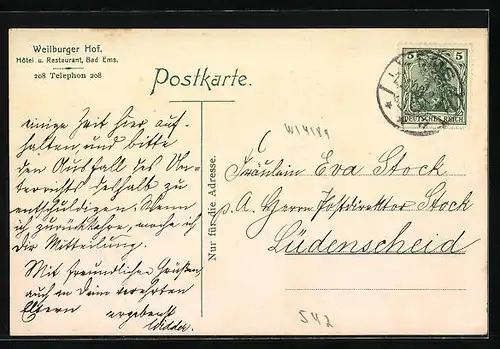 Weilburger Hof.
Hôtel u. Restaurant, Bad Ems.
208 Telephon 208
Postkarte.
5 5
DEUTSCHES REICH
Nur für die Adresse.
W14189
einige Zeit hier auf-
halten, und bitte
den Ausfall des Un-
terrichts deshalb zu
entschuldigen. Wenn
ich zurückkehre, mache ich
Dir Mitteilung.
Mit freundlichen Grüßen
auch an Deine verehrten
Eltern
ergebenst
Widder.
Fräulein Eva Stock
p. A. Herrn Postdirektor Stock
Lüdenscheid
542